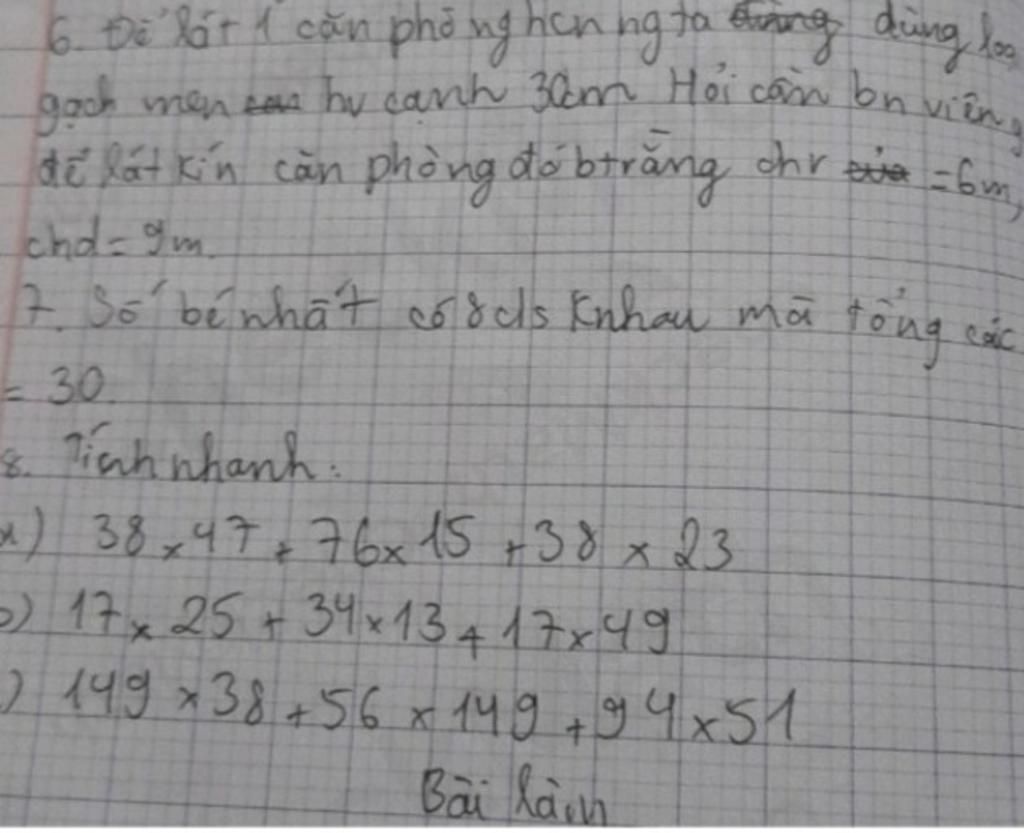 6. Để lát 1 căn phòng hcn ngta dùng loạ
gạch men hv cạnh 30cm Hỏi cần bn viên g
để lát kín căn phòng đó btrằng chr = 6m,
chd = 9m.
7. Số bé nhất có 8cls Knhau mà tổng các
= 30
8. Tính nhanh:
a) 38 x 47 + 76 x 15 + 38 x 23
b) 17 x 25 + 34 x 13 + 17 x 49
) 149 x 38 + 56 x 149 + 94 x 51
Bài làm